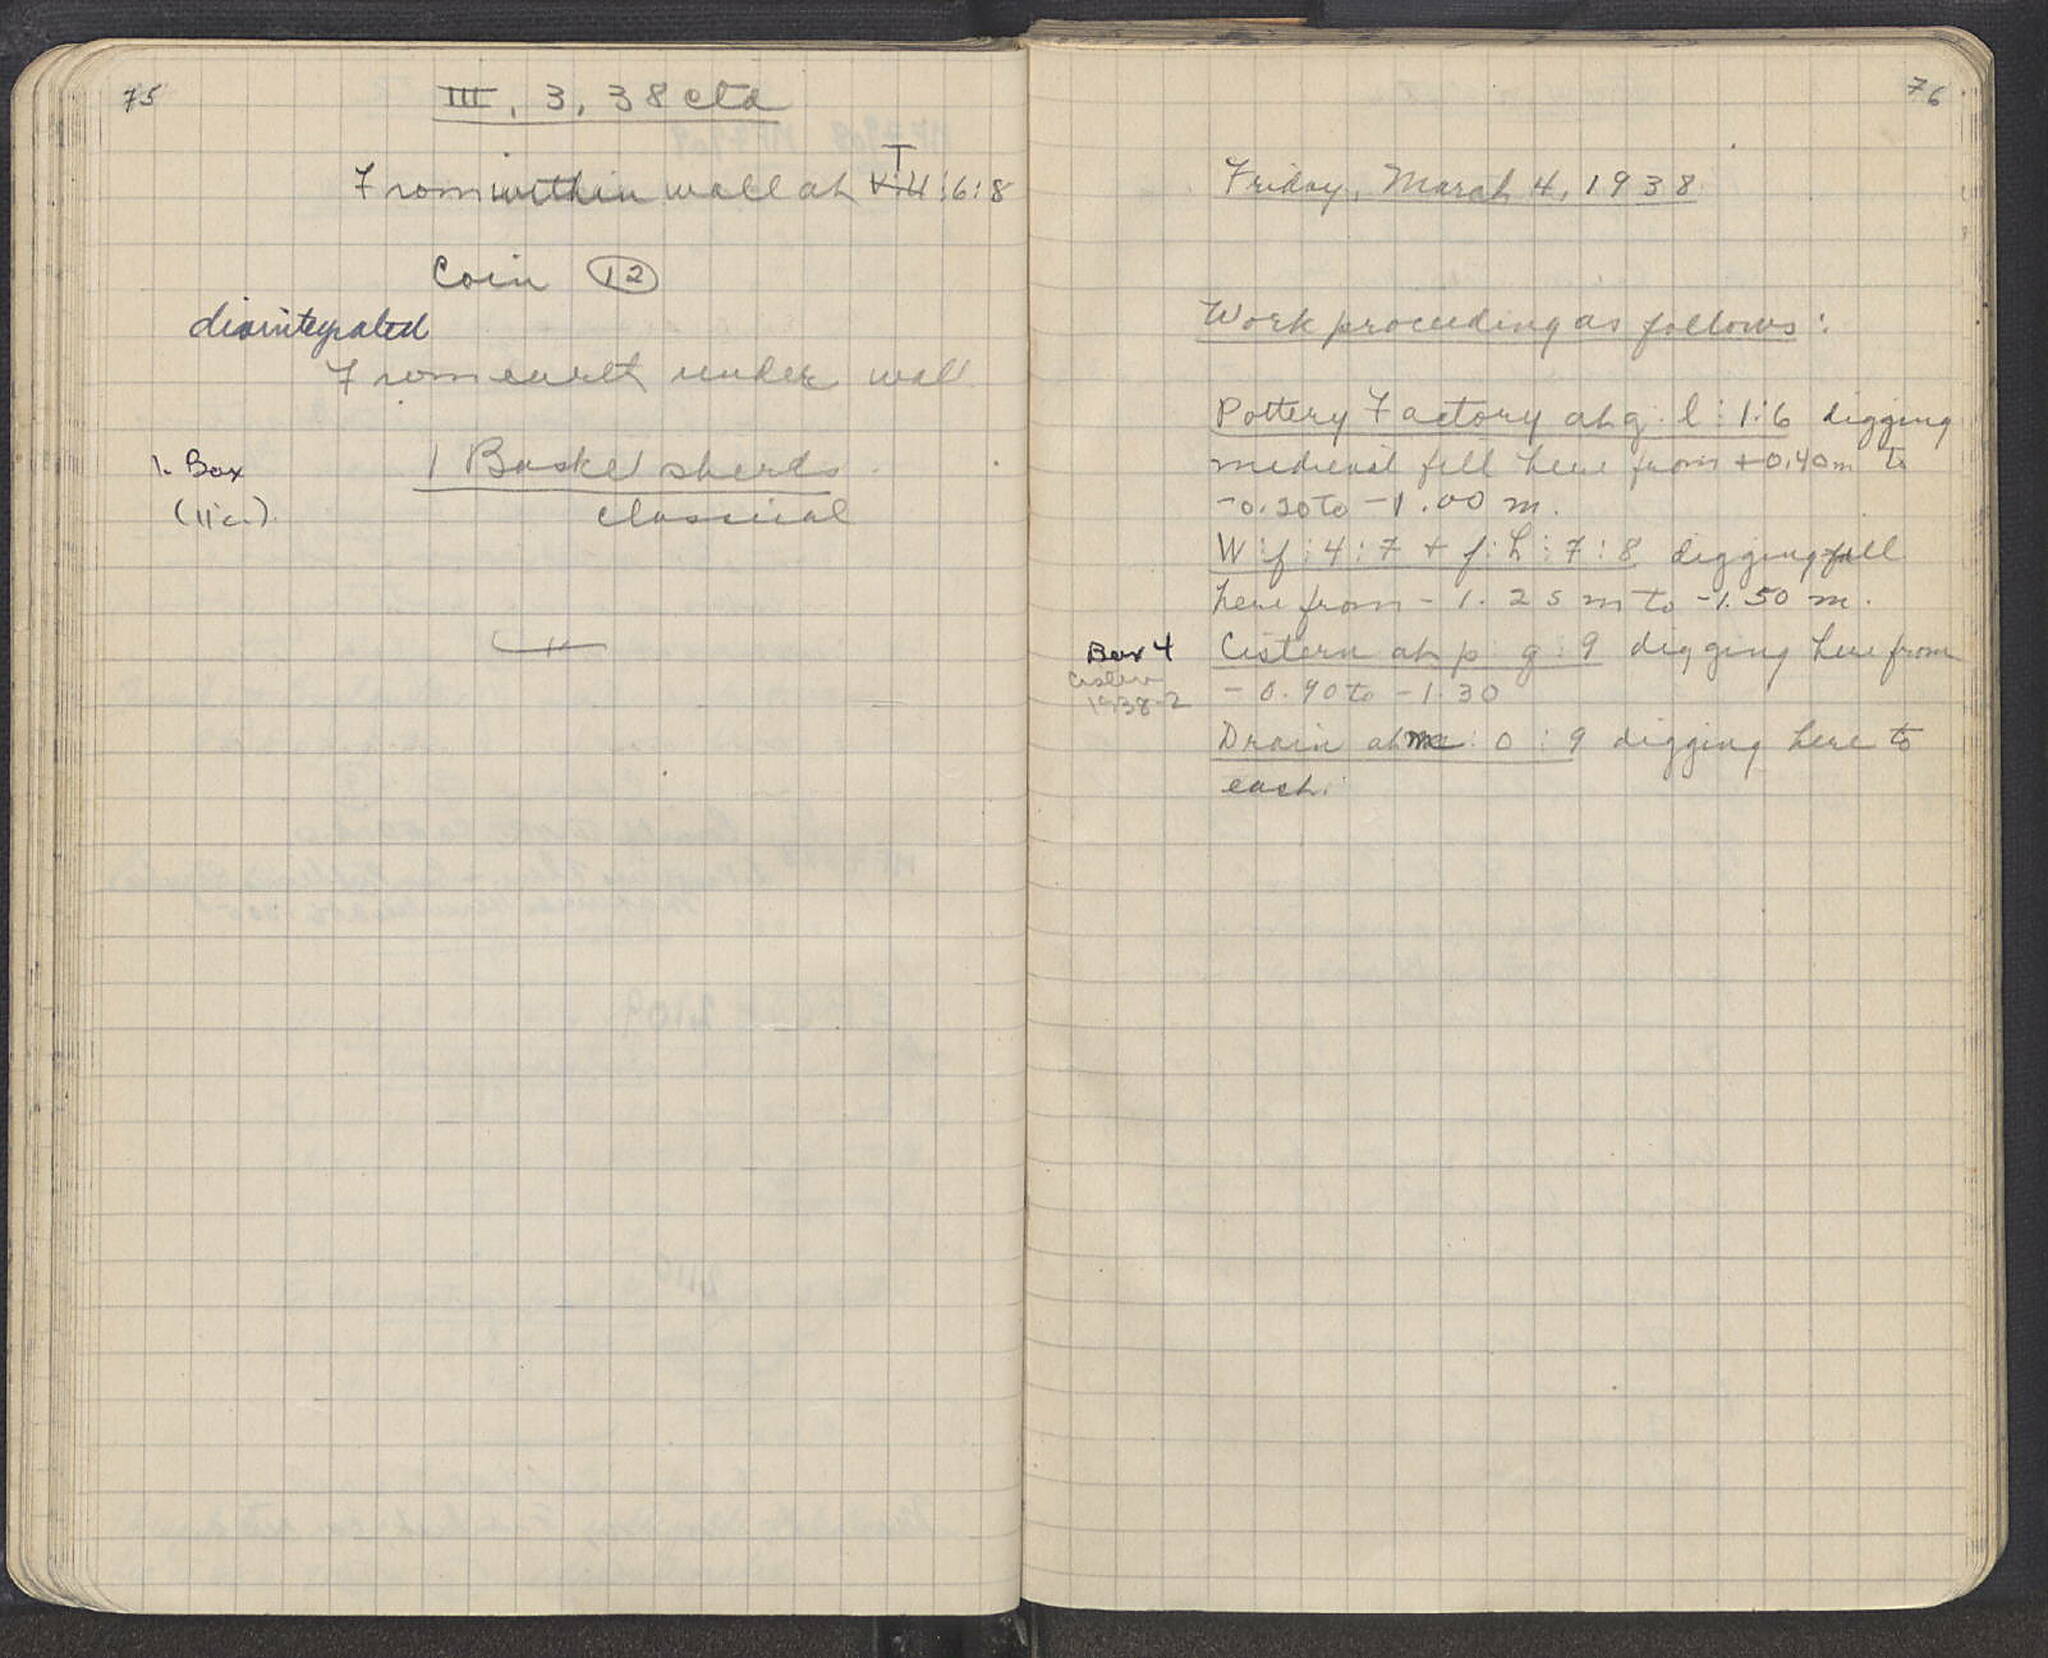 75
III, 3, 38 ctd
T
From within wall at :6:8
Coin 12
disintegrated
From earth under wall
1. Box
1 Basket sherds
(11 c.).
classical
76
Friday, March 4, 1938
Work proceeding as follows:
Pottery Factory at g:l:1:6 digging
medieval fill here from +0.40m to
-0.20 to -1.00 m.
W:f:4:7 + f:h:7:8 digging fill
here from -1.25 m to -1.50 m.
Box 4
Cistern at p:q:9 digging here from
Cistern
1938-2
-0.90 to -1.30
Drain at m:o:9 digging here to
each.